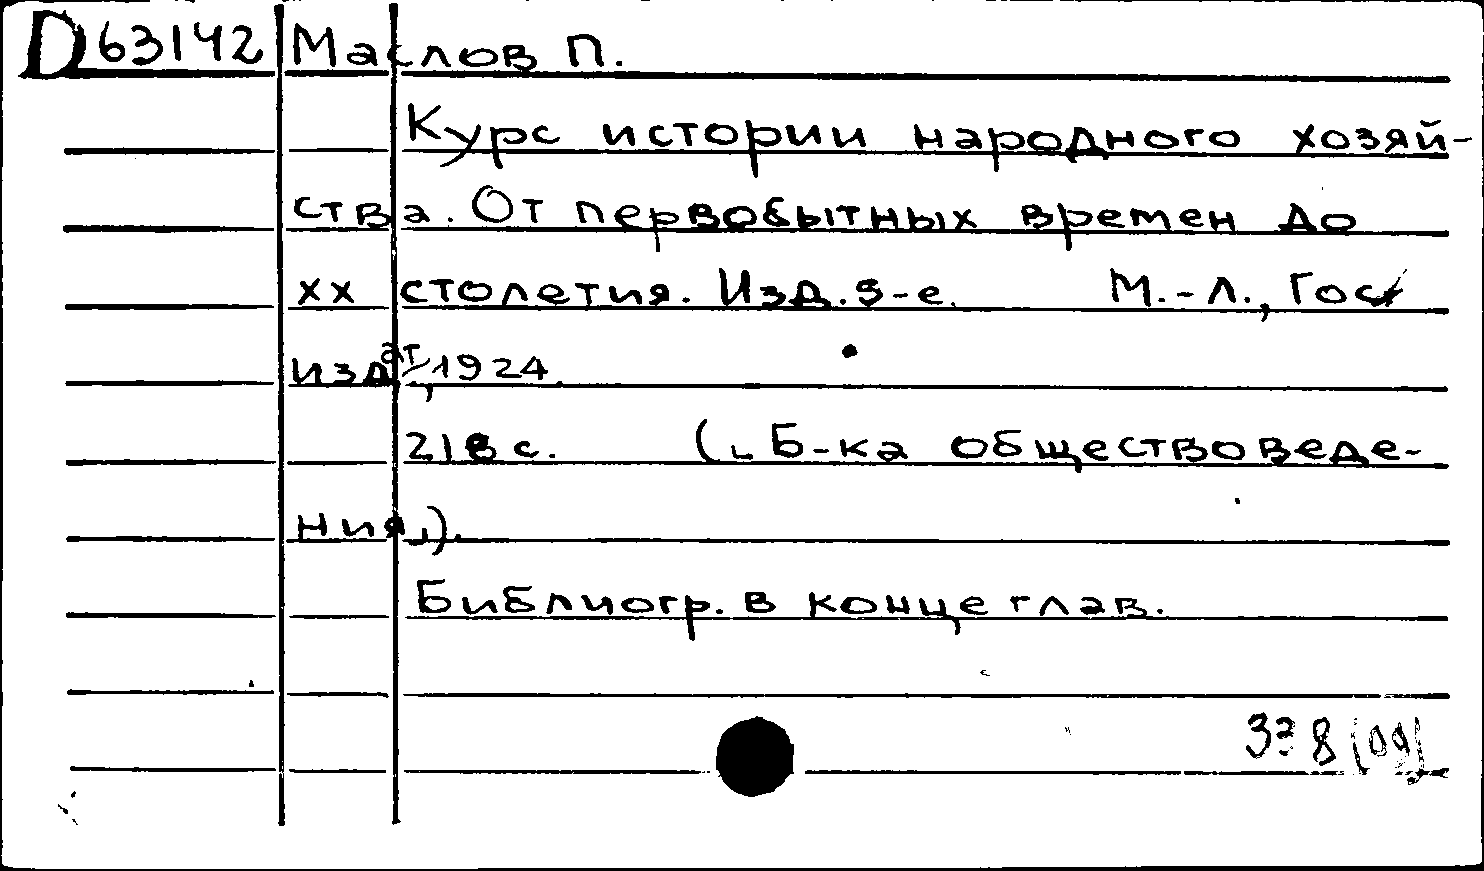 D63142 Маслов П.
Курс истории народного хозяй-
ства. От первобытных времен до
XX столетия. Изд. 5-е. М.-Л., Гос
издат, 1924.
218 с. („Б-ка обществоведе-
ния„).
Библиогр. в конце глав.
338(09)